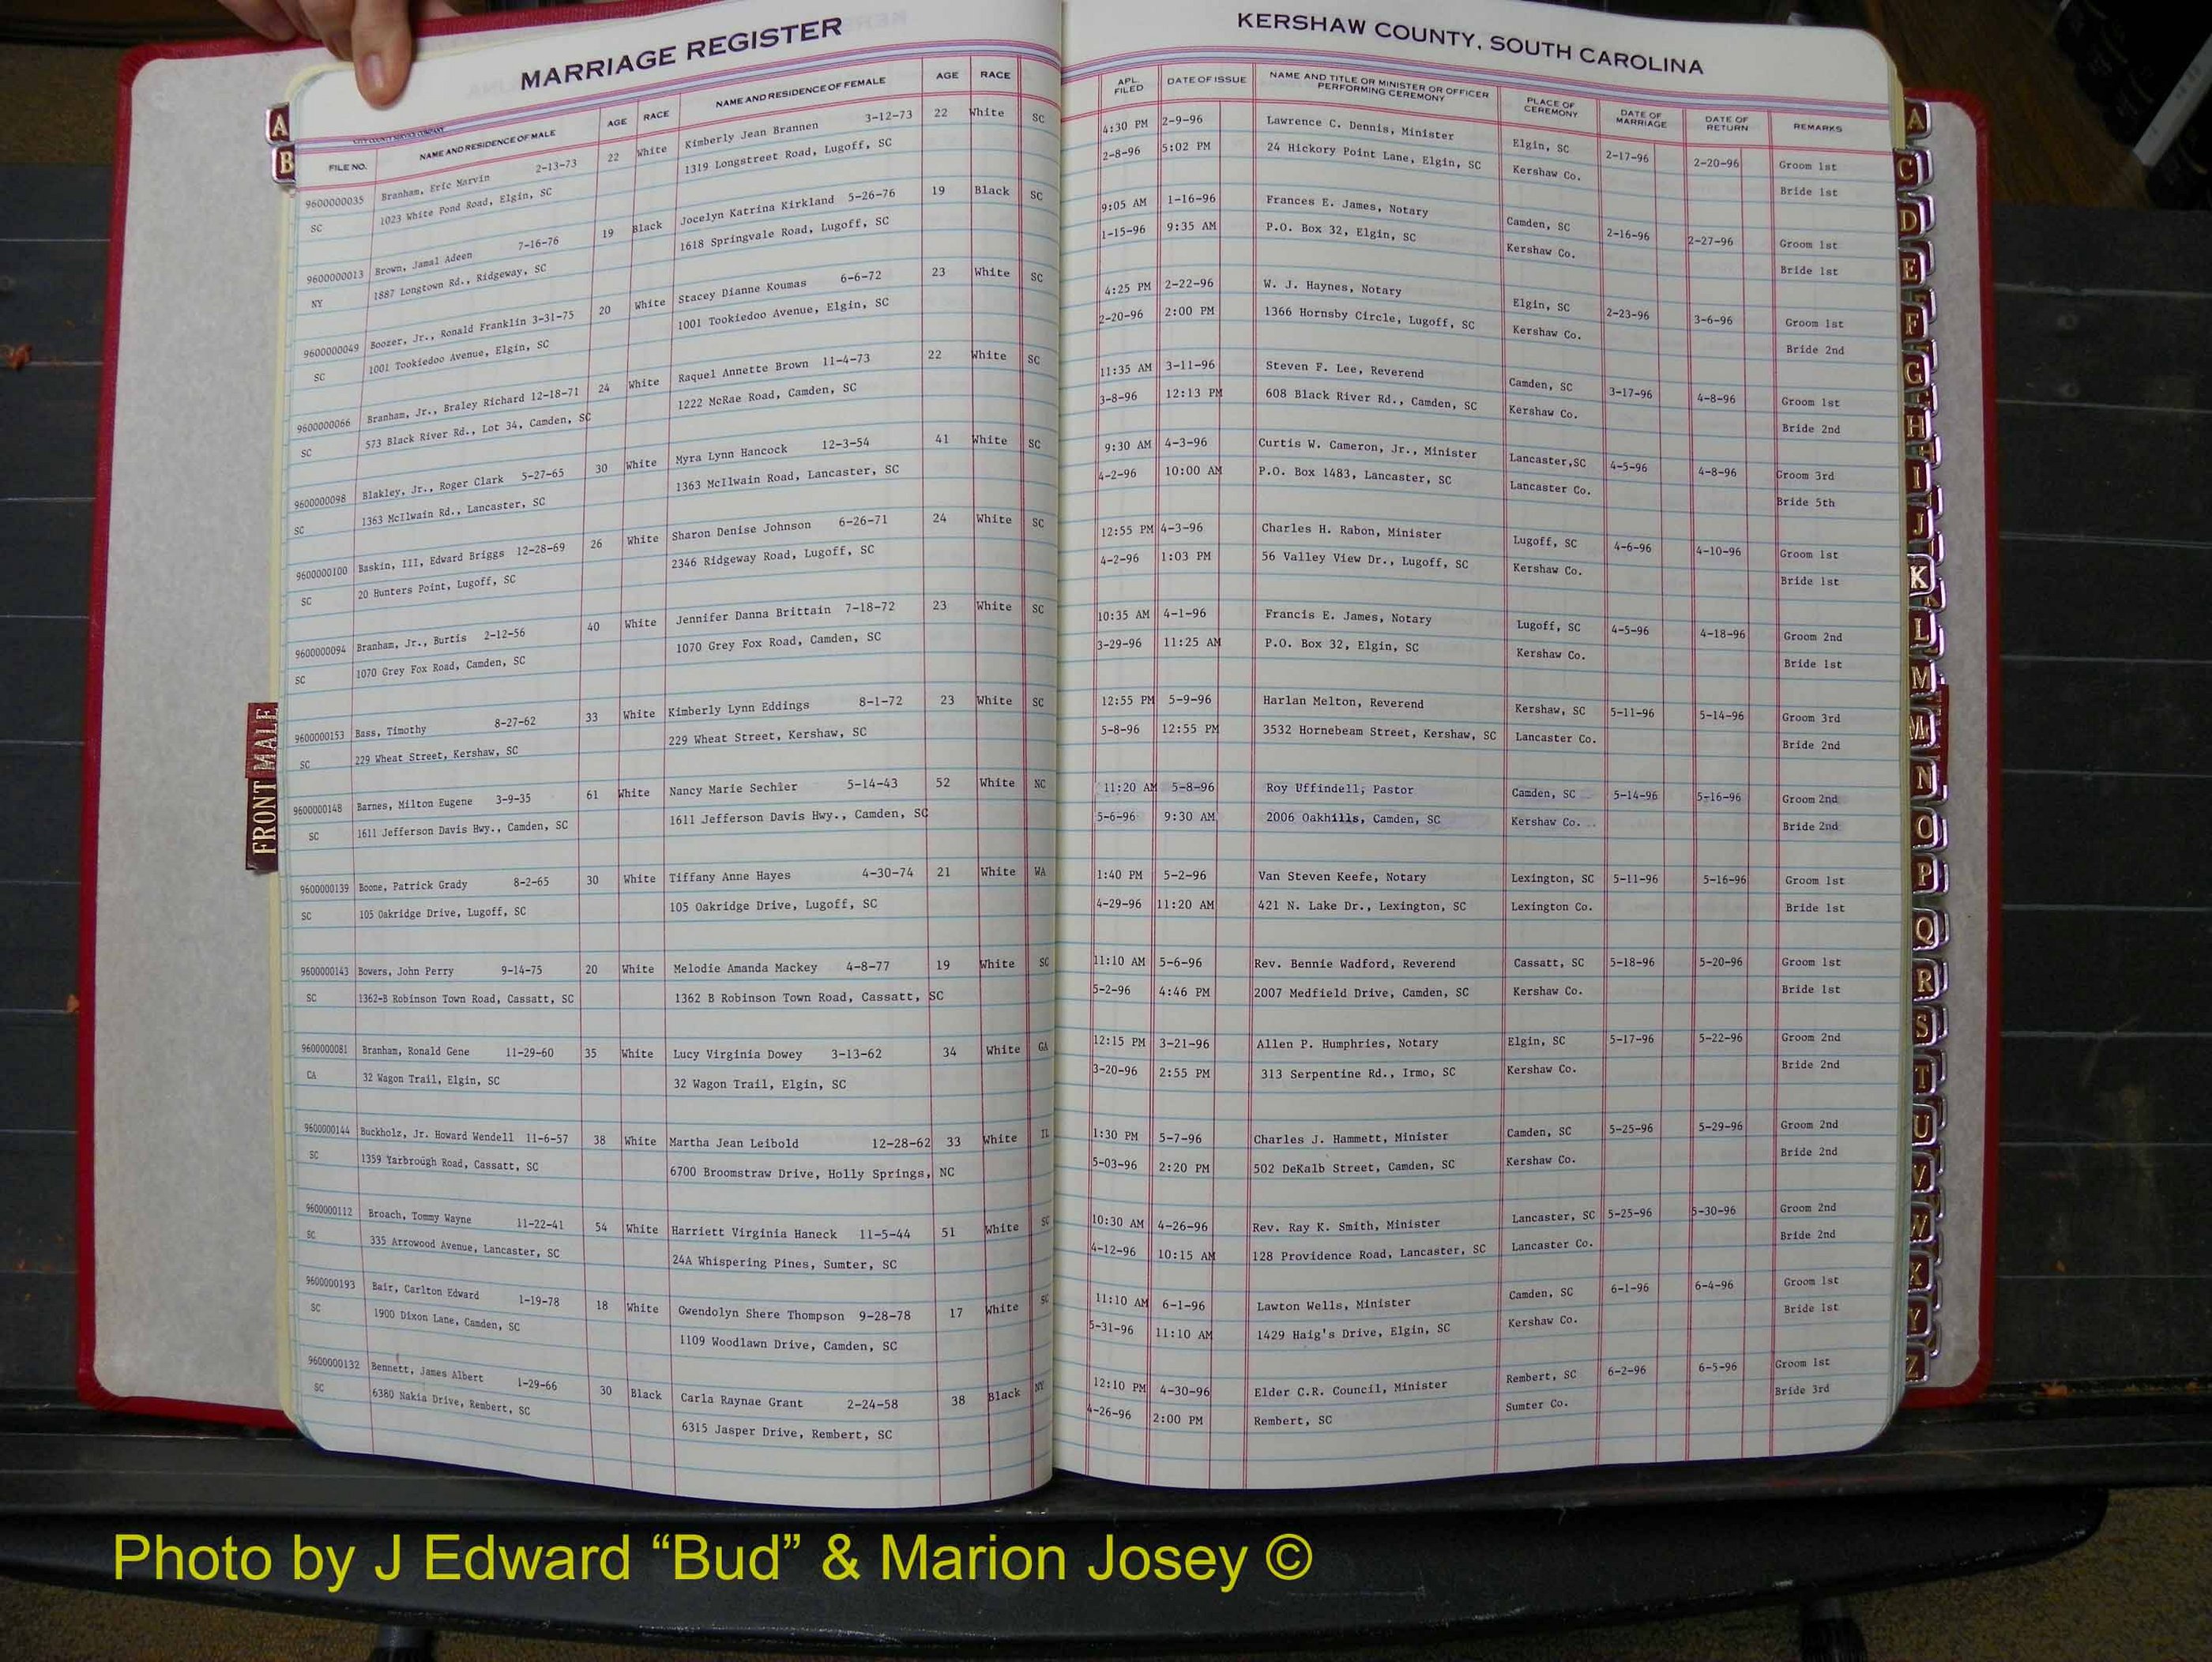 MARRIAGE REGISTER
KERSHAW COUNTY, SOUTH CAROLINA
CITY COUNTY SERVICE COMPANY
FILE NO. NAME AND RESIDENCE OF MALE AGE RACE NAME AND RESIDENCE OF FEMALE AGE RACE APL. FILED DATE OF ISSUE NAME AND TITLE OR MINISTER OR OFFICER PERFORMING CEREMONY PLACE OF CEREMONY DATE OF MARRIAGE DATE OF RETURN REMARKS
9600000035 Branham, Eric Marvin 2-13-73 22 White Kimberly Jean Brannen 3-12-73 22 White SC 4:30 PM 2-9-96 Lawrence C. Dennis, Minister Elgin, SC 2-17-96 2-20-96 Groom 1st
SC 1023 White Pond Road, Elgin, SC 1319 Longstreet Road, Lugoff, SC 2-8-96 5:02 PM 24 Hickory Point Lane, Elgin, SC Kershaw Co. Bride 1st
9600000013 Brown, Jamal Adeen 7-16-76 19 Black Jocelyn Katrina Kirkland 5-26-76 19 Black SC 9:05 AM 1-16-96 Frances E. James, Notary Camden, SC 2-16-96 2-27-96 Groom 1st
NY 1887 Longtown Rd., Ridgeway, SC 1618 Springvale Road, Lugoff, SC 1-15-96 9:35 AM P.O. Box 32, Elgin, SC Kershaw Co. Bride 1st
9600000049 Boozer, Jr., Ronald Franklin 3-31-75 20 White Stacey Dianne Koumas 6-6-72 23 White SC 4:25 PM 2-22-96 W. J. Haynes, Notary Elgin, SC 2-23-96 3-6-96 Groom 1st
SC 1001 Tookiedoo Avenue, Elgin, SC 1001 Tookiedoo Avenue, Elgin, SC 2-20-96 2:00 PM 1366 Hornsby Circle, Lugoff, SC Kershaw Co. Bride 2nd
9600000066 Branham, Jr., Braley Richard 12-18-71 24 White Raquel Annette Brown 11-4-73 22 White SC 11:35 AM 3-11-96 Steven F. Lee, Reverend Camden, SC 3-17-96 4-8-96 Groom 1st
SC 573 Black River Rd., Lot 34, Camden, SC 1222 McRae Road, Camden, SC 3-8-96 12:13 PM 608 Black River Rd., Camden, SC Kershaw Co. Bride 2nd
9600000098 Blakley, Jr., Roger Clark 5-27-65 30 White Myra Lynn Hancock 12-3-54 41 White SC 9:30 AM 4-3-96 Curtis W. Cameron, Jr., Minister Lancaster,SC 4-5-96 4-8-96 Groom 3rd
SC 1363 McIlwain Rd., Lancaster, SC 1363 McIlwain Road, Lancaster, SC 4-2-96 10:00 AM P.O. Box 1483, Lancaster, SC Lancaster Co. Bride 5th
9600000100 Baskin, III, Edward Briggs 12-28-69 26 White Sharon Denise Johnson 6-26-71 24 White SC 12:55 PM 4-3-96 Charles H. Rabon, Minister Lugoff, SC 4-6-96 4-10-96 Groom 1st
SC 20 Hunters Point, Lugoff, SC 2346 Ridgeway Road, Lugoff, SC 4-2-96 1:03 PM 56 Valley View Dr., Lugoff, SC Kershaw Co. Bride 1st
9600000094 Branham, Jr., Burtis 2-12-56 40 White Jennifer Danna Brittain 7-18-72 23 White SC 10:35 AM 4-1-96 Francis E. James, Notary Lugoff, SC 4-5-96 4-18-96 Groom 2nd
SC 1070 Grey Fox Road, Camden, SC 1070 Grey Fox Road, Camden, SC 3-29-96 11:25 AM P.O. Box 32, Elgin, SC Kershaw Co. Bride 1st
9600000153 Bass, Timothy 8-27-62 33 White Kimberly Lynn Eddings 8-1-72 23 White SC 12:55 PM 5-9-96 Harlan Melton, Reverend Kershaw, SC 5-11-96 5-14-96 Groom 3rd
SC 229 Wheat Street, Kershaw, SC 229 Wheat Street, Kershaw, SC 5-8-96 12:55 PM 3532 Hornebeam Street, Kershaw, SC Lancaster Co. Bride 2nd
9600000148 Barnes, Milton Eugene 3-9-35 61 White Nancy Marie Sechler 5-14-43 52 White NC 11:20 AM 5-8-96 Roy Uffindell, Pastor Camden, SC 5-14-96 5-16-96 Groom 2nd
SC 1611 Jefferson Davis Hwy., Camden, SC 1611 Jefferson Davis Hwy., Camden, SC 5-6-96 9:30 AM 2006 Oakhills, Camden, SC Kershaw Co. Bride 2nd
9600000139 Boone, Patrick Grady 8-2-65 30 White Tiffany Anne Hayes 4-30-74 21 White WA 1:40 PM 5-2-96 Van Steven Keefe, Notary Lexington, SC 5-11-96 5-16-96 Groom 1st
SC 105 Oakridge Drive, Lugoff, SC 105 Oakridge Drive, Lugoff, SC 4-29-96 11:20 AM 421 N. Lake Dr., Lexington, SC Lexington Co. Bride 1st
9600000143 Bowers, John Perry 9-14-75 20 White Melodie Amanda Mackey 4-8-77 19 White SC 11:10 AM 5-6-96 Rev. Bennie Wadford, Reverend Cassatt, SC 5-18-96 5-20-96 Groom 1st
SC 1362-B Robinson Town Road, Cassatt, SC 1362 B Robinson Town Road, Cassatt, SC 5-2-96 4:46 PM 2007 Medfield Drive, Camden, SC Kershaw Co. Bride 1st
9600000081 Branham, Ronald Gene 11-29-60 35 White Lucy Virginia Dowey 3-13-62 34 White GA 12:15 PM 3-21-96 Allen P. Humphries, Notary Elgin, SC 5-17-96 5-22-96 Groom 2nd
CA 32 Wagon Trail, Elgin, SC 32 Wagon Trail, Elgin, SC 3-20-96 2:55 PM 313 Serpentine Rd., Irmo, SC Kershaw Co. Bride 2nd
9600000144 Buckholz, Jr. Howard Wendell 11-6-57 38 White Martha Jean Leibold 12-28-62 33 White IL 1:30 PM 5-7-96 Charles J. Hammett, Minister Camden, SC 5-25-96 5-29-96 Groom 2nd
SC 1359 Yarbrough Road, Cassatt, SC 6700 Broomstraw Drive, Holly Springs, NC 5-03-96 2:20 PM 502 DeKalb Street, Camden, SC Kershaw Co. Bride 2nd
9600000112 Broach, Tommy Wayne 11-22-41 54 White Harriett Virginia Haneck 11-5-44 51 White SC 10:30 AM 4-26-96 Rev. Ray K. Smith, Minister Lancaster, SC 5-25-96 5-30-96 Groom 2nd
SC 335 Arrowood Avenue, Lancaster, SC 24A Whispering Pines, Sumter, SC 4-12-96 10:15 AM 128 Providence Road, Lancaster, SC Lancaster Co. Bride 2nd
9600000193 Bair, Carlton Edward 1-19-78 18 White Gwendolyn Shere Thompson 9-28-78 17 White SC 11:10 AM 6-1-96 Lawton Wells, Minister Camden, SC 6-1-96 6-4-96 Groom 1st
SC 1900 Dixon Lane, Camden, SC 1109 Woodlawn Drive, Camden, SC 5-31-96 11:10 AM 1429 Haig's Drive, Elgin, SC Kershaw Co. Bride 1st
9600000132 Bennett, James Albert 1-29-66 30 Black Carla Raynae Grant 2-24-58 38 Black NY 12:10 PM 4-30-96 Elder C.R. Council, Minister Rembert, SC 6-2-96 6-5-96 Groom 1st
SC 6380 Nakia Drive, Rembert, SC 6315 Jasper Drive, Rembert, SC 4-26-96 2:00 PM Rembert, SC Sumter Co. Bride 3rd
A
B
FRONT MALE
A
C
D
E
F
G
H
I
J
K
L
M
Mc
N
O
P
Q
R
S
T
U
V
W
X
Y
Z
Photo by J Edward “Bud” & Marion Josey ©